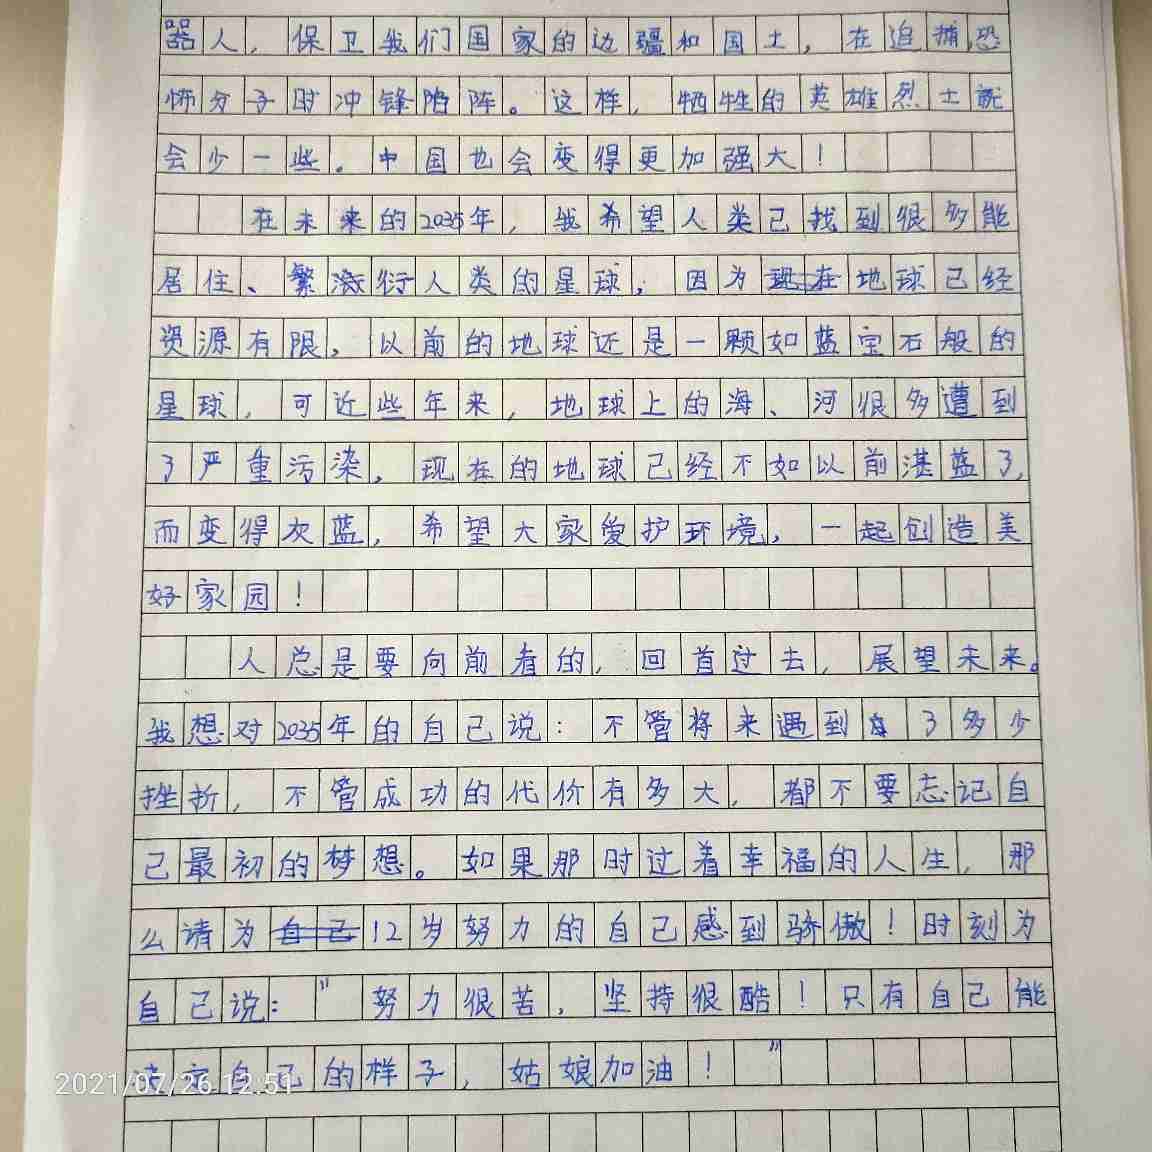 器人，保卫我们国家的边疆和国土，在追捕恐
怖分子时冲锋陷阵。这样，牺牲的英雄烈士就
会少一些。中国也会变得更加强大！
在未来的2035年，我希望人类已找到很多能
居住、繁衍人类的星球，因为现在地球已经
资源有限，以前的地球还是一颗如蓝宝石般的
星球，可近些年来，地球上的海、河很多遭到
了严重污染，现在的地球已经不如以前湛蓝了，
而变得灰蓝，希望大家爱护环境，一起创造美
好家园！
人总是要向前看的，回首过去，展望未来。
我想对2035年的自己说：不管将来遇到了多少
挫折，不管成功的代价有多大，都不要忘记自
己最初的梦想。如果那时过着幸福的人生，那
么请为自己12岁努力的自己感到骄傲！时刻为
自己说："努力很苦，坚持很酷！只有自己能
决定自己的样子，姑娘加油！"
2021/07/26 12:51